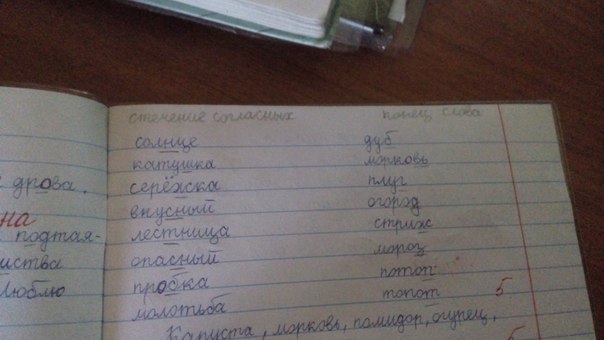 дрова.
на
подтая-
иства
Люблю
стечение согласных конец слова
солнце дуб
катушка морковь
серёжка плуг
вкусный огород
лестница стриж
опасный мороз
пробка потоп
молотьба топот 5
Капуста, морковь, помидор, огурец,